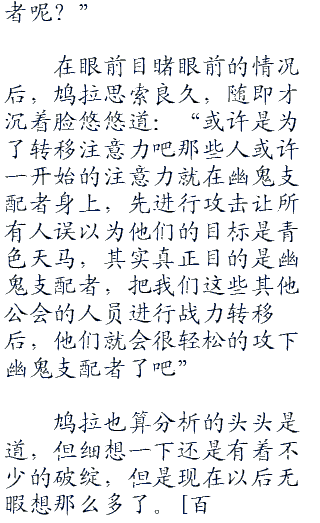 者呢？”
在眼前目睹眼前的情况
后，鸠拉思索良久，随即才
沉着脸悠悠道：“或许是为
了转移注意力吧那些人或许
一开始的注意力就在幽鬼支
配者身上，先进行攻击让所
有人误以为他们的目标是青
色天马，其实真正目的是幽
鬼支配者，把我们这些其他
公会的人员进行战力转移
后，他们就会很轻松的攻下
幽鬼支配者了吧”
鸠拉也算分析的头头是
道，但细想一下还是有着不
少的破绽，但是现在以后无
暇想那么多了。[百